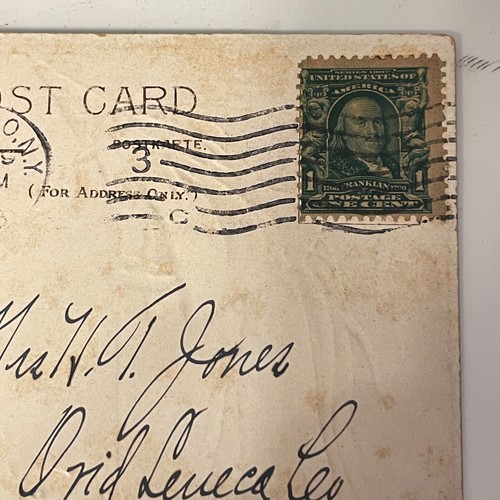 OST CARD
POSTKARTE.
(FOR ADDRESS ONLY.)
O, N.Y.
3
C
SERIES 1902
UNITED STATES OF
AMERICA
1 FRANKLIN 1
1706 1790
POSTAGE
ONE CENT
Mrs H. T. Jones
Ovid Seneca Co